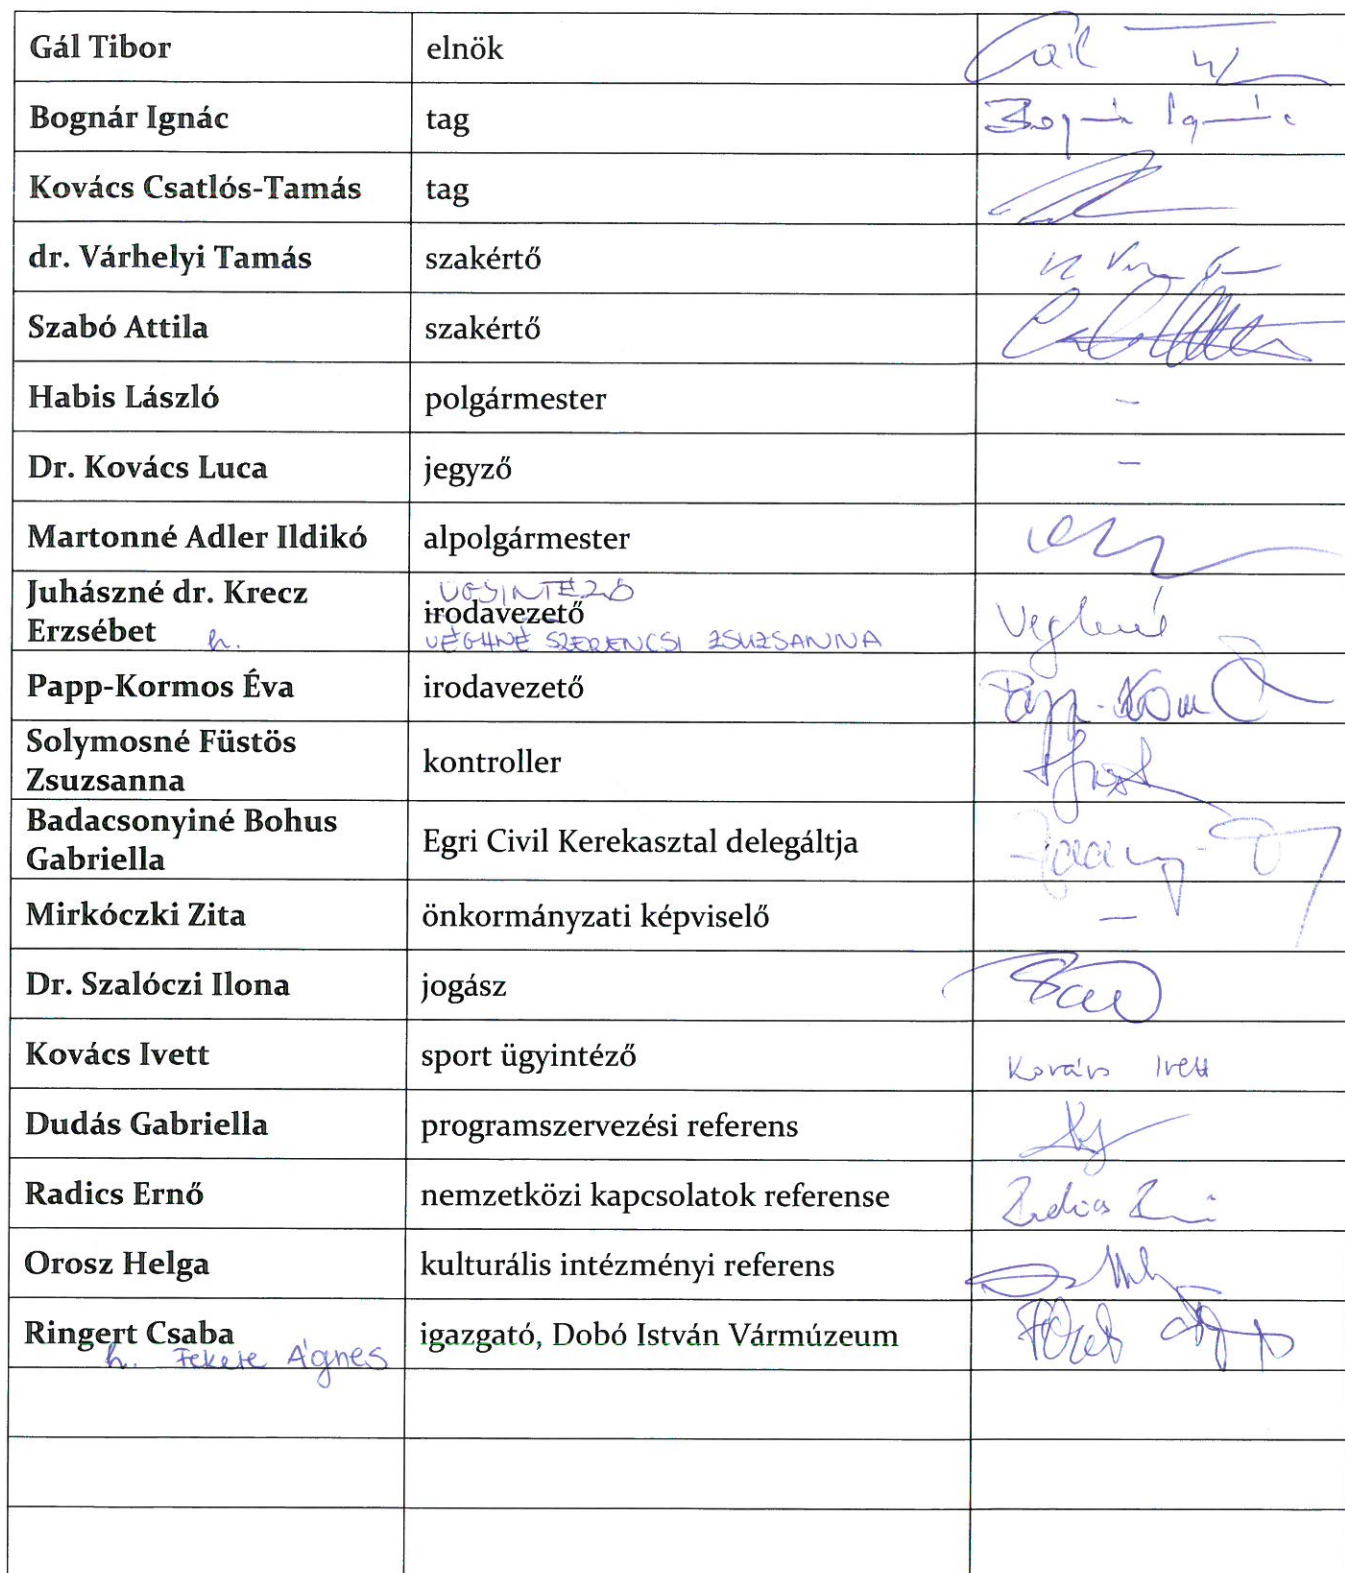 Gál Tibor elnök
Bognár Ignác tag Bognár Ignác
Kovács Csatlós-Tamás tag
dr. Várhelyi Tamás szakértő
Szabó Attila szakértő
Habis László polgármester –
Dr. Kovács Luca jegyző –
Martonné Adler Ildikó alpolgármester
Juhászné dr. Krecz ÜGYINTÉZŐ
Erzsébet h. irodavezető Veghné
VÉGHNÉ SZERENCSI ZSUZSANNA
Papp-Kormos Éva irodavezető
Solymosné Füstös
Zsuzsanna kontroller
Badacsonyiné Bohus
Gabriella Egri Civil Kerekasztal delegáltja
Mirkóczki Zita önkormányzati képviselő –
Dr. Szalóczi Ilona jogász
Kovács Ivett sport ügyintéző Kovács Ivett
Dudás Gabriella programszervezési referens
Radics Ernő nemzetközi kapcsolatok referense
Orosz Helga kulturális intézményi referens
Ringert Csaba igazgató, Dobó István Vármúzeum
h. Fekete Ágnes